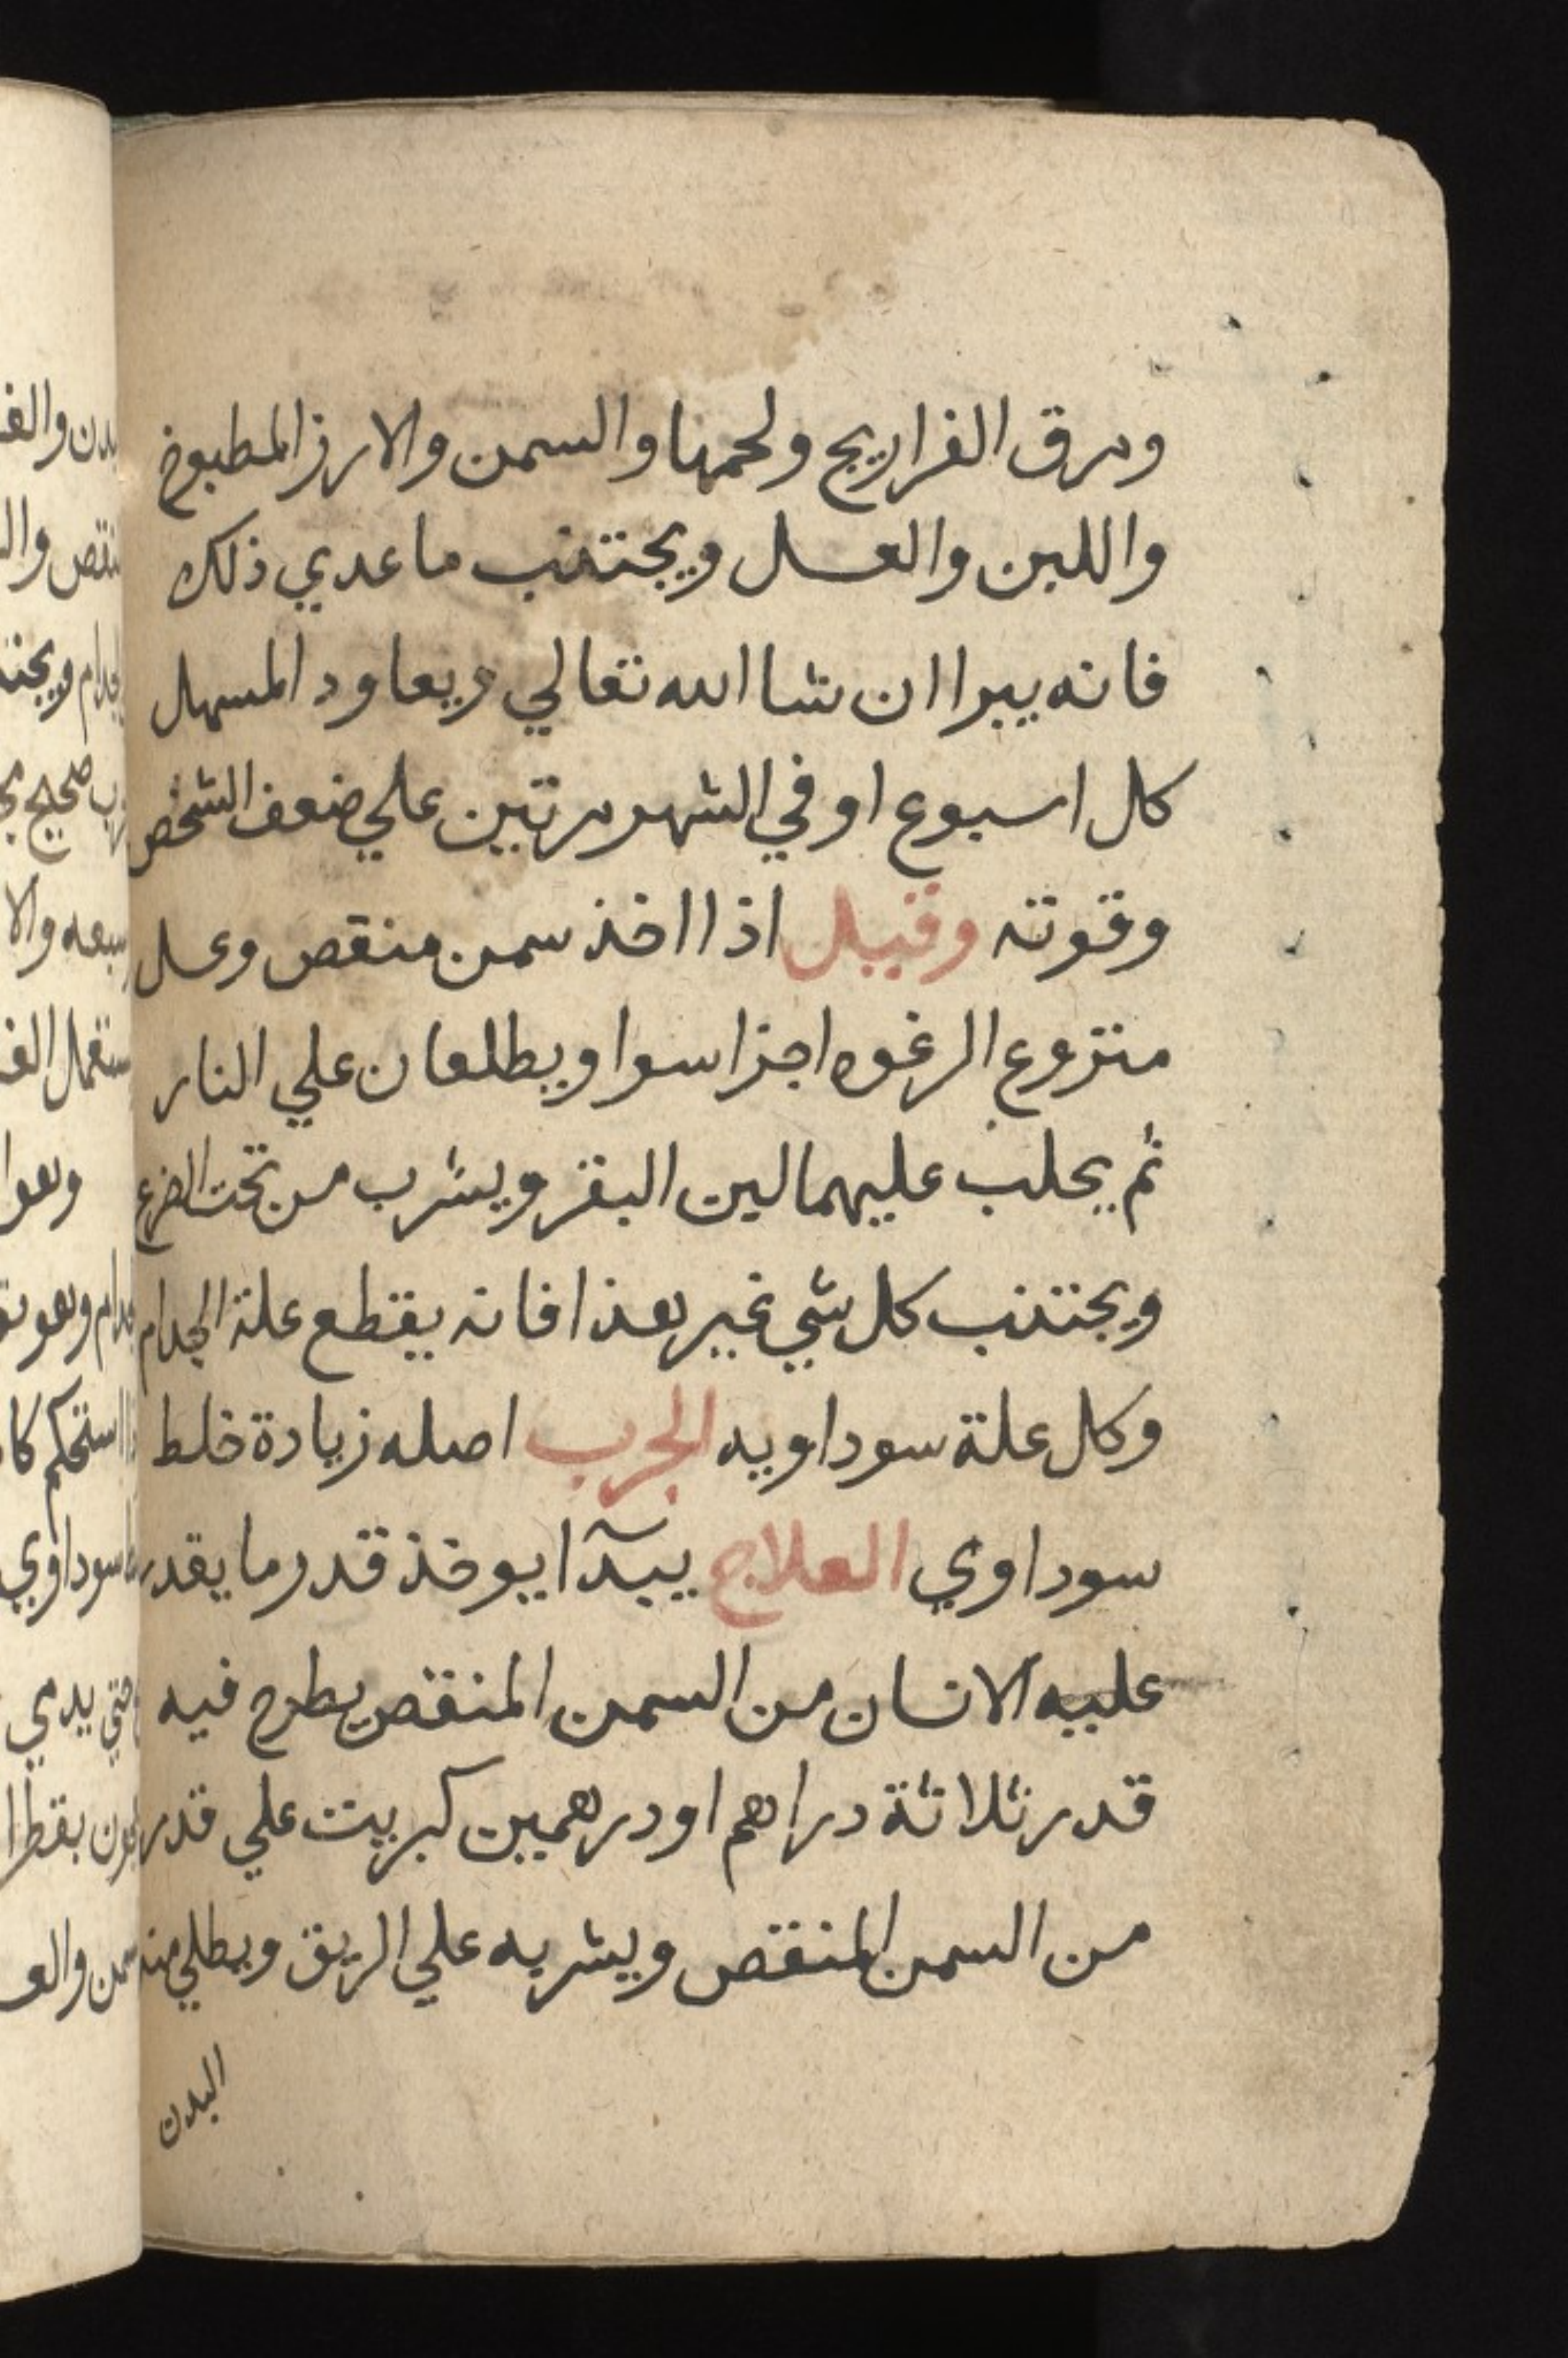 ومرق الفراريج ولحمها والسمن والارز المطبوخ
واللبن والعسل ويجتنب ما عدي ذلك
فانه يبرا ان شا الله تعالي ويعاود المسهل
كل اسبوع او في الشهر مرتين علي ضعف الشخص
وقوته وقيل اذا اخذ سمن منقص وعسل
منزوع الرغوه اجزا سوا ويطلعان علي النار
ثم يحلب عليهما لبن البقر ويشرب من تحت الضرع
ويجتنب كل شي غير هذا فانه يقطع علة الجدام
وكل علة سوداويه الجرب اصله زيادة خلط
سوداوي العلاج يبدآ ايوخذ قدر ما يقدر
عليه الانسان من السمن المنقص يطرح فيه
قدر ثلاثة دراهم او درهمين كبريت علي قدر
من السمن المنقص ويشربه علي الريق ويطلي منه
البدن